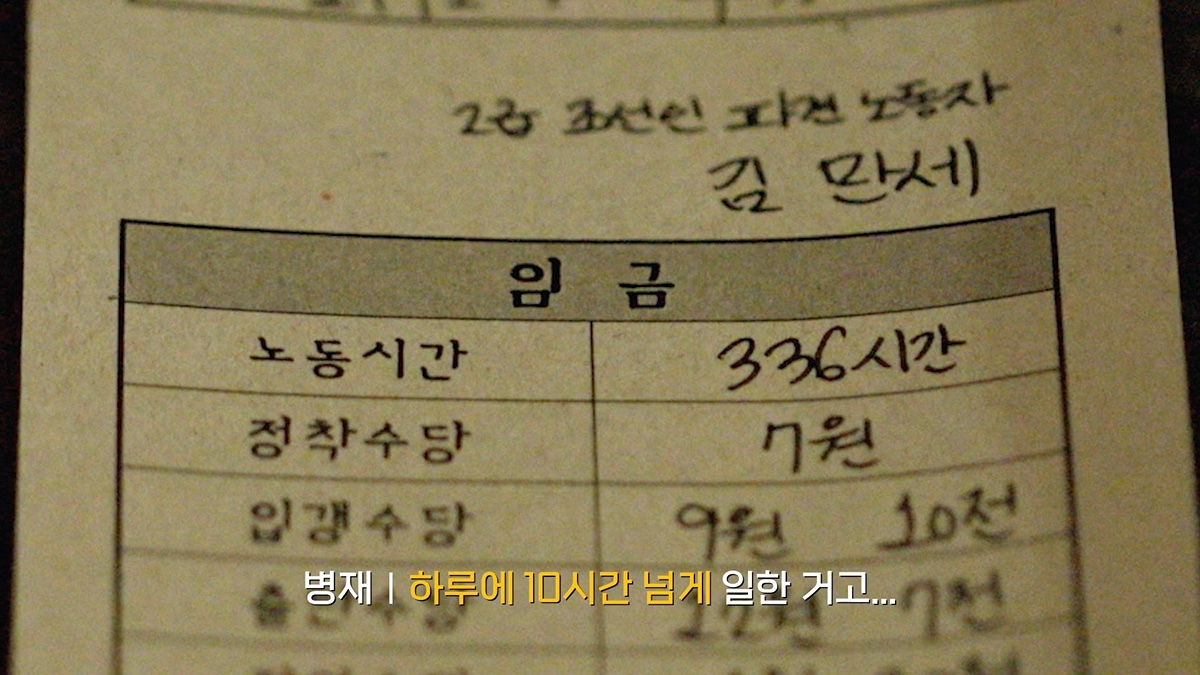 2급 조선인 파견 노동자
김 만세
임 금
노동시간 336시간
정착수당 7원
입갱수당 9원 10전
수당 7전
병재 | 하루에 10시간 넘게 일한 거고...